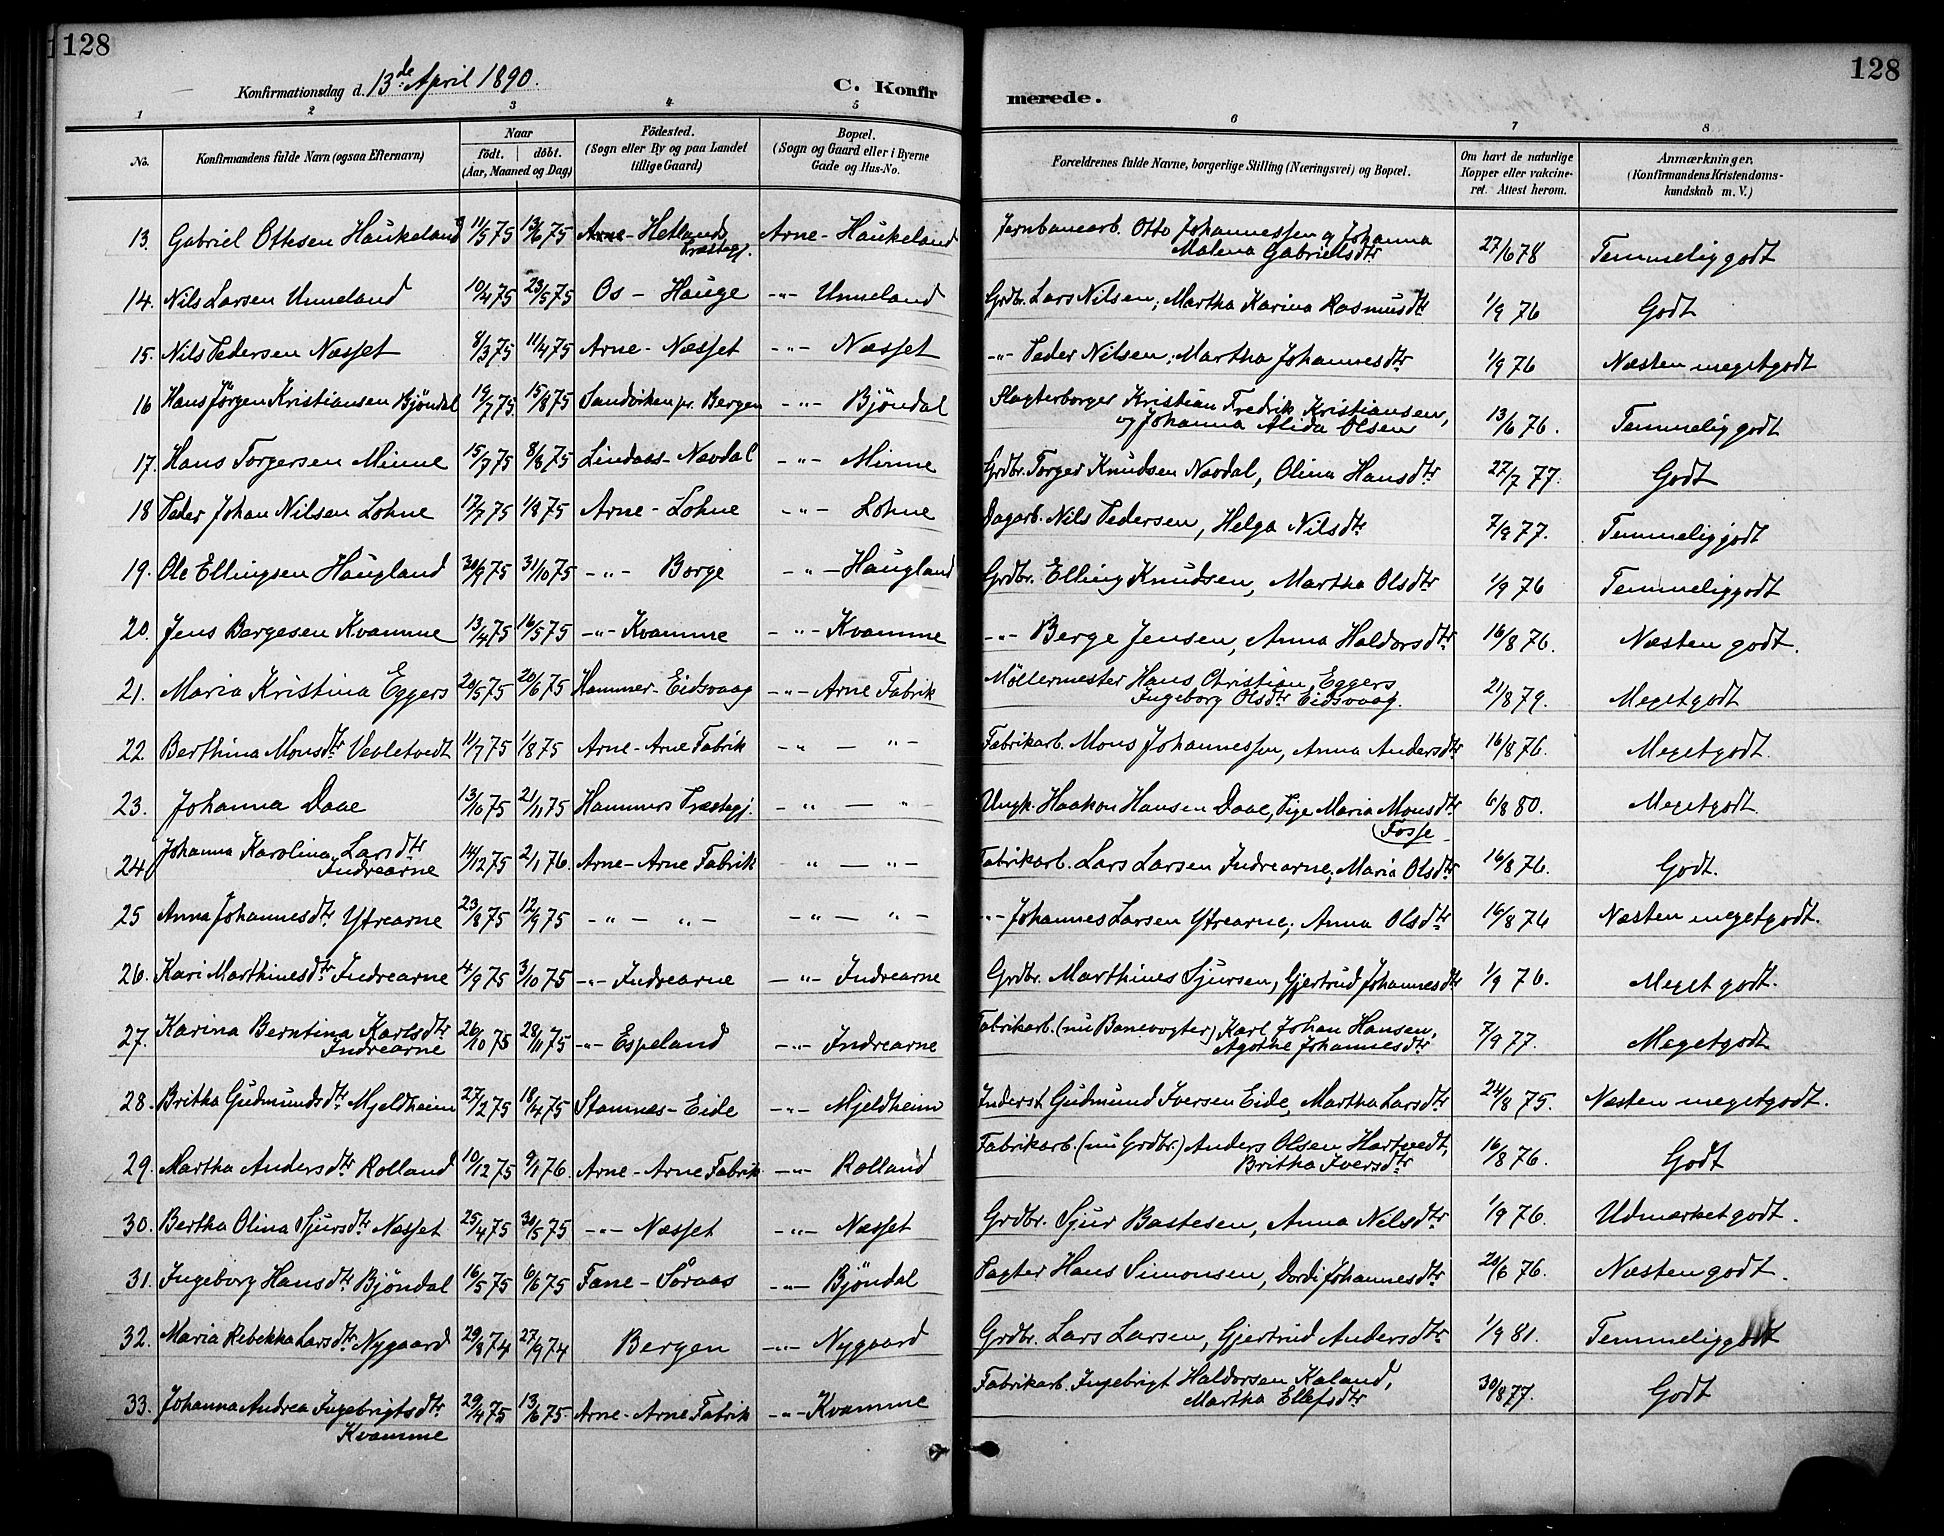 128
128
Konfirmationsdag d. 13de April 1890.
C. Konfir
merede.
1 2 3 4 5 6 7 8
No. Konfirmandens fulde Navn (ogsaa Efternavn) Naar födt. döbt. (Aar, Maaned og Dag) Födested. (Sogn eller By og paa Landet tillige Gaard) Bopæl. (Sogn og Gaard eller i Byerne Gade og Hus-No. Forældrenes fulde Navne, borgerlige Stilling (Næringsvei) og Bopæl. Om havt de naturlige Kopper eller vakcineret. Attest herom. Anmærkninger. (Konfirmandens Kristendomskundskab m. V.)
13. Gabriel Ottesen Haukeland 11/5 75 13/6 75 Arne - Hetlands Præstegj. Arne - Haukeland Jernbanearb. Otto Johannessen og Johanna Malena Gabrielsdtr 27/6 78 Temmelig godt
14. Nils Larsen Unneland 10/4 75 23/5 75 Os - Hauge -"- Unneland Grdbr. Lars Nilsen; Martha Karina Rasmusdtr 1/9 76 Godt
15. Nils Pedersen Næsset 8/3 75 11/4 75 Arne - Næsset -"- Næsset -"- Peder Nilsen; Martha Johannesdtr 1/9 76 Næsten meget godt
16 Hans Jörgen Kristiansen Bjöndal 19/7 75. 15/8 75 Sandviken pr. Bergen -"- Bjöndal Slagterborger Kristian Fredrik Kristiansen, og Johanna Alida Olsen 13/6 76. Temmelig godt
17. Hans Torgersen Minne 15/7 75 8/8 75 Lindaas - Nævdal -"- Minne Grdbr. Torger Knudsen Nævdal, Olina Hansdtr 27/7 77. Godt
18 Peder Johan Nilsen Lohne 17/7 75 1/8 75 Arne - Lohne -"- Lohne Dagarb. Nils Pedersen, Helga Nilsdtr 7/9 77. Temmelig godt
19. Ole Ellingsen Haugland 30/9 75 31/10 75 -"- Borge -"- Haugland Grdbr. Elling Knudsen, Martha Olsdtr 1/9 76 Temmelig godt
20. Jens Bergesen Kvamme 13/4 75 16/5 75 -"- Kvamme -"- Kvamme -"- Berge Jensen, Anna Haldorsdtr 16/8 76. Næsten godt.
21. Maria Kristina Eggers 20/5 75 20/6 75 Hammer - Eidsvaag -"- Arne Fabrik Möllermester Hans Christian Eggers Ingeborg Olsdtr Eidsvaag. 21/8 79. Meget godt
22. Berthina Monsdtr Vevletvedt 11/7 75 1/8 75 Arne - Arne Fabrik -"- -"- Fabrikarb. Mons Johannessen, Anna Andersdtr 16/8 76. Meget godt.
23. Johanna Daae 13/10 75 21/11 75 Hammers Præstegj. -"- -"- Ungk. Haakon Hansen Daae, Pige Maria Monsdtr Fosse 6/8 80. Meget godt.
24 Johanna Karolina Larsdtr Indrearne 14/12 75 2/1 76. Arne - Arne Fabrik -"- -"- Fabrikarb. Lars Larsen Indrearne; Maria Olsdtr 16/8 76. Godt.
25 Anna Johannesdtr Ytrearne 23/8 75 12/9 75 -"- -"- -"- -"- -"- Johannes Larsen Ytrearne; Anna Olsdtr 16/8 76 Næsten meget godt.
26. Kari Marthinesdtr Indrearne 4/9 75 3/10 75 -"- Indrearne -"- Indrearne Grdbr. Marthines Sjursen, Gjertrud Johannesdtr 1/9 76. Meget godt.
27. Karina Berntina Karlsdtr Indrearne 26/10 75 28/11 75 -"- Espeland -"- Indrearne Fabrikarb. (nu Banevogter) Karl Johan Hansen, Agothe Johannesdtr 7/9 77. Meget godt
28. Britha Gudmundsdtr Mjeldheim 27/2 75 18/4 75 Stamnes - Eide -"- Mjeldheim Inderst Gudmund Iversen Eide, Martha Larsdtr 24/8 75. Næsten meget godt.
29. Martha Andersdtr Rolland 10/12 75 9/1 76. Arne - Arne Fabrik -"- Rolland Fabrikarb. (nu Grdbr.) Anders Olsen Hartvedt, Britha Iversdtr 16/8 76. Godt
30. Bertha Olina Sjursdtr Næsset 25/4 75 30/5 75 -"- Næsset -"- Næsset Grdbr. Sjur Bastesen, Anna Nilsdtr 1/9 76. Udmærket godt.
31. Ingeborg Hansdtr Bjöndal 16/5 75 6/6 75 Fane - Söraas -"- Bjöndal Hans Simonsen, Dordi Johannesdtr 20/6 76. Næsten godt.
32. Maria Rebekka Larsdtr Nygaard 29/8 74 27/9 74 Bergen -"- Nygaard Grdbr. Lars Larsen, Gjertrud Andersdtr 1/9 81. Temmelig godt
33. Johanna Andrea Ingebrigtsdtr Kvamme 29/4 75 13/6 75. Arne - Arne Fabrik -"- Kvamme Fabrikarb. Ingebrigt Haldorsen Kaland, Martha Ellefsdtr 30/8 77. Godt